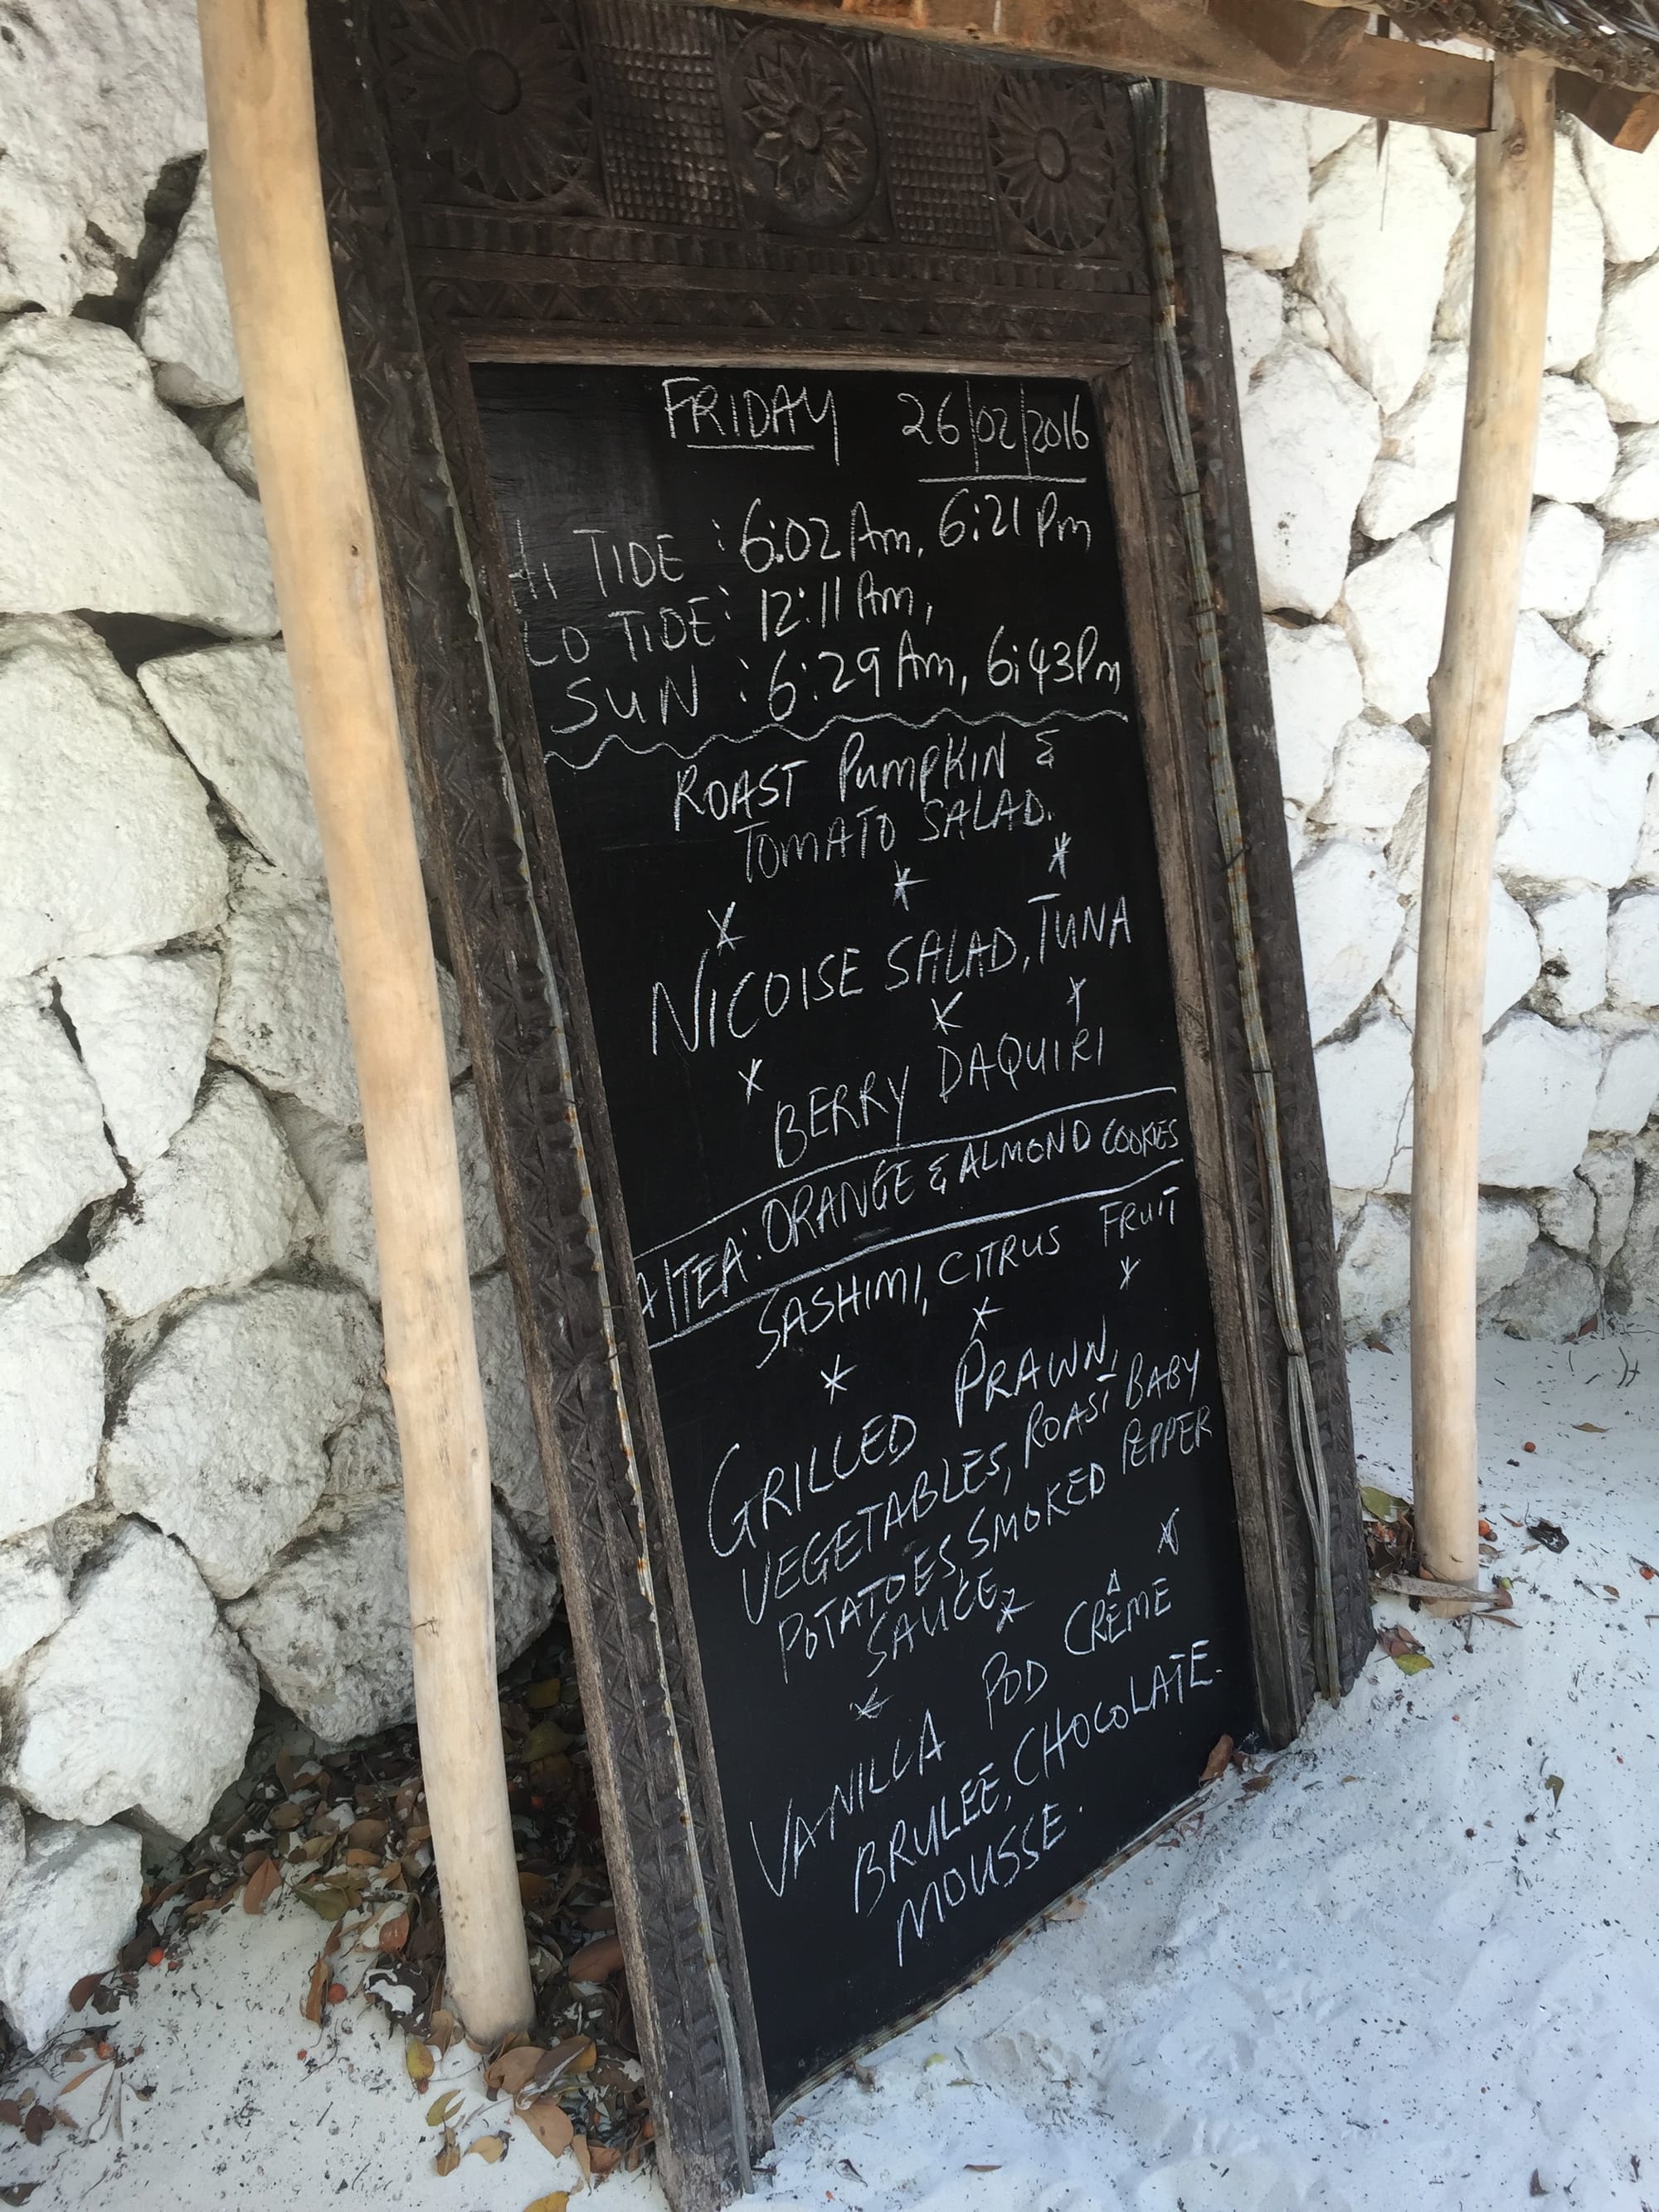 FRIDAY 26/02/2016
Hi TIDE : 6:02 Am, 6:21 Pm
LO TIDE: 12:11 Am,
SUN : 6:29 Am, 6:43 Pm
ROAST PumpKIN &
TOMATO SALAD.
NICOISE SALAD, TUNA
BERRY DAQUIRI
A/TEA: ORANGE & ALMOND COOKIES
SASHIMI, CITRUS FRUIT
GRILLED PRAWN,
VEGETABLES, ROAST BABY
POTATOES SMOKED PEPPER
SAUCE
VANILLA POD CRÊME
BRULEE, CHOCOLATE.
MOUSSE.